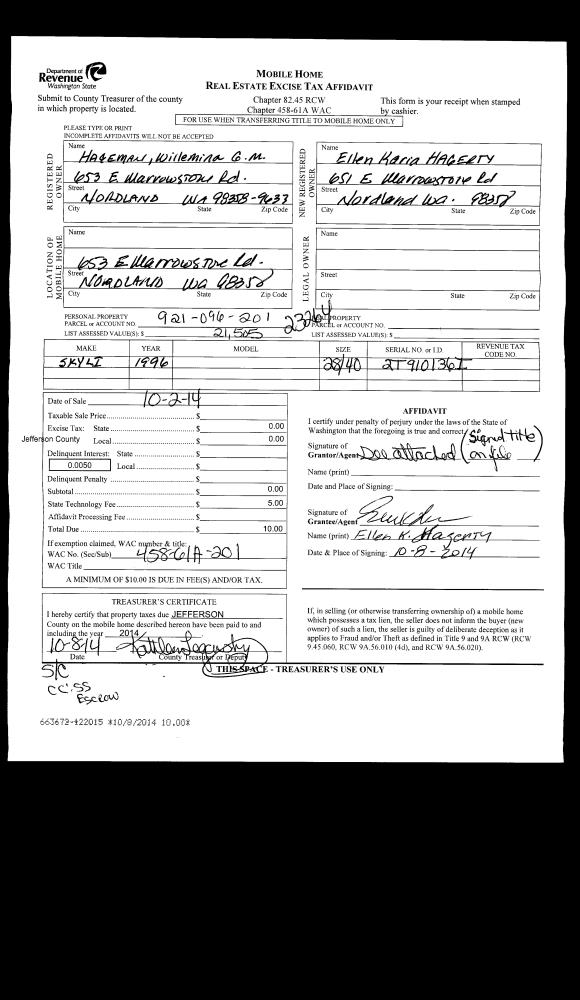 Department of
Revenue
Washington State
MOBILE HOME
REAL ESTATE EXCISE TAX AFFIDAVIT
Submit to County Treasurer of the county
in which property is located.
Chapter 82.45 RCW
Chapter 458-61A WAC
This form is your receipt when stamped
by cashier.
FOR USE WHEN TRANSFERRING TITLE TO MOBILE HOME ONLY
PLEASE TYPE OR PRINT
INCOMPLETE AFFIDAVITS WILL NOT BE ACCEPTED
REGISTERED OWNER
Name
HAGEMAN, Willemina G.M.
653 E. Marrowstone Rd.
Street
NORDLAND WA 98358-9633
City State Zip Code
NEW REGISTERED OWNER
Name
Ellen Karia HAGERTY
651 E Marrowstone Rd
Street
Nordland Wa. 98358
City State Zip Code
LOCATION OF MOBILE HOME
Name
653 E Marrowstone Rd.
Street
NORDLAND Wa 98358
City State Zip Code
LEGAL OWNER
Name
Street
City State Zip Code
PERSONAL PROPERTY
PARCEL or ACCOUNT NO. 921-096-201
LIST ASSESSED VALUE(S): $ 21,505
23264
REAL PROPERTY
PARCEL or ACCOUNT NO.
LIST ASSESSED VALUE(S): $
MAKE YEAR MODEL SIZE SERIAL NO. or I.D. REVENUE TAX CODE NO.
SKYLI 1996 28/40 2T910136I
Date of Sale 10-2-14
Taxable Sale Price $
Excise Tax: State $ 0.00
Jefferson County Local $ 0.00
Delinquent Interest: State $
0.0050 Local $
Delinquent Penalty $
Subtotal $ 0.00
State Technology Fee $ 5.00
Affidavit Processing Fee $
Total Due $ 10.00
If exemption claimed, WAC number & title:
WAC No. (Sec/Sub) 458-61A-201
WAC Title
A MINIMUM OF $10.00 IS DUE IN FEE(S) AND/OR TAX.
AFFIDAVIT
I certify under penalty of perjury under the laws of the State of
Washington that the foregoing is true and correct.
Signature of
Grantor/Agent See attached (Signed title on file)
Name (print)
Date and Place of Signing:
Signature of
Grantee/Agent
Name (print) Ellen K. Hagerty
Date & Place of Signing: 10-8-2014
TREASURER'S CERTIFICATE
I hereby certify that property taxes due JEFFERSON
County on the mobile home described hereon have been paid to and
including the year 2014
10-8-14
Date County Treasurer or Deputy
If, in selling (or otherwise transferring ownership of) a mobile home
which possesses a tax lien, the seller does not inform the buyer (new
owner) of such a lien, the seller is guilty of deliberate deception as it
applies to Fraud and/or Theft as defined in Title 9 and 9A RCW (RCW
9.45.060, RCW 9A.56.010 (4d), and RCW 9A.56.020).
THIS SPACE - TREASURER'S USE ONLY
S/C
CC: SS
Escrow
663672-122015 *10/9/2014 10.00*